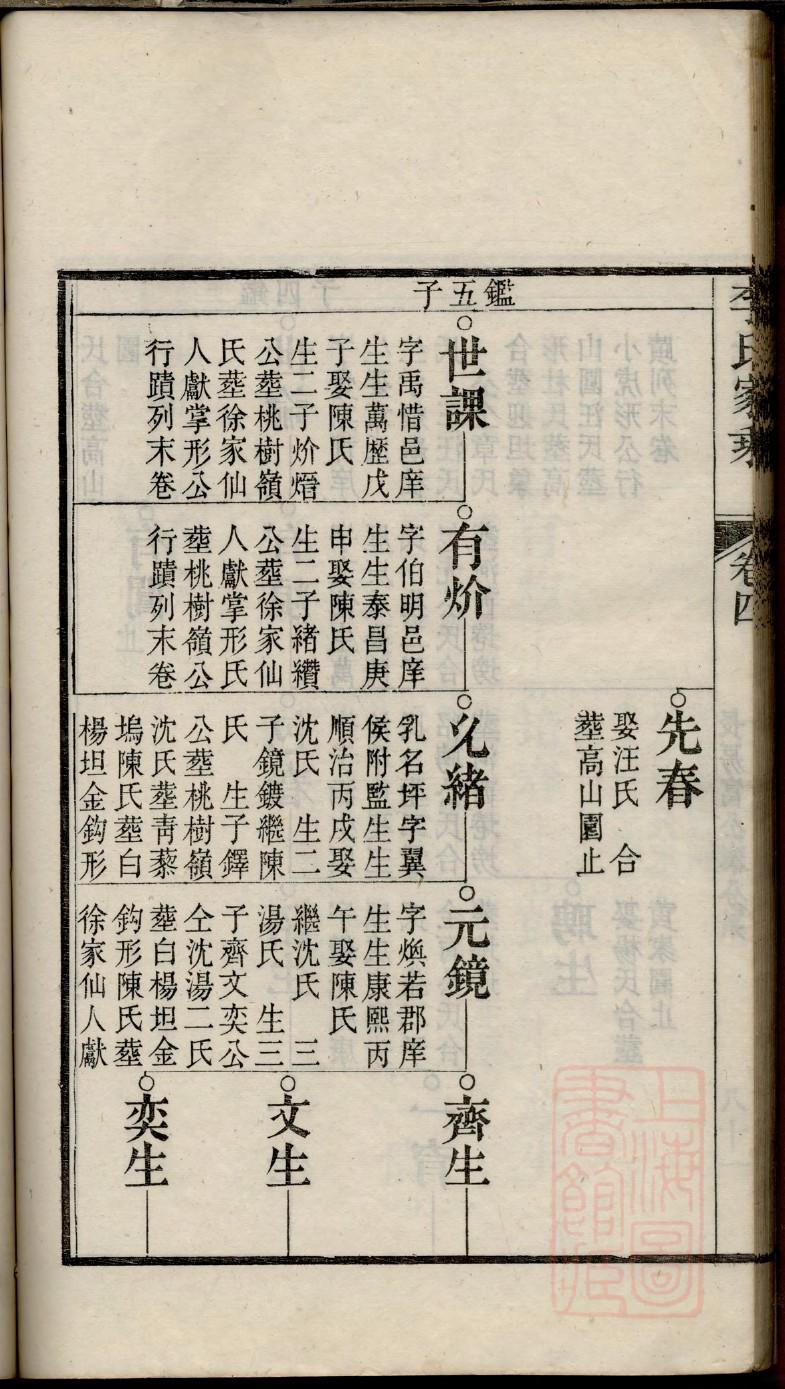 李氏家乘
卷四
先春
娶汪氏　合
塟高山園止
鑑五子
世課
字禹惜邑庠
生生萬歴戊
子娶陳氏
生二子炌熸
公塟桃樹嶺
氏塟徐家仙
人獻掌形公
行蹟列末卷
有炌
字伯明邑庠
生生泰昌庚
申娶陳氏
生二子緒纘
公塟徐家仙
人獻掌形氏
塟桃樹嶺公
行蹟列末卷
乆緒
乳名坪字翼
侯附監生生
順治丙戌娶
沈氏　生二
子鏡鍍繼陳
氏　生子鐸
公塟桃樹嶺
沈氏塟靑藜
塢陳氏塟白
楊坦金鈎形
元鏡
字煥若郡庠
生生康熙丙
午娶陳氏
繼沈氏　三
湯氏　生三
子齊文奕公
仝沈湯二氏
塟白楊坦金
鈎形陳氏塟
徐家仙人獻
齊生
文生
奕生
上海圖
書館藏